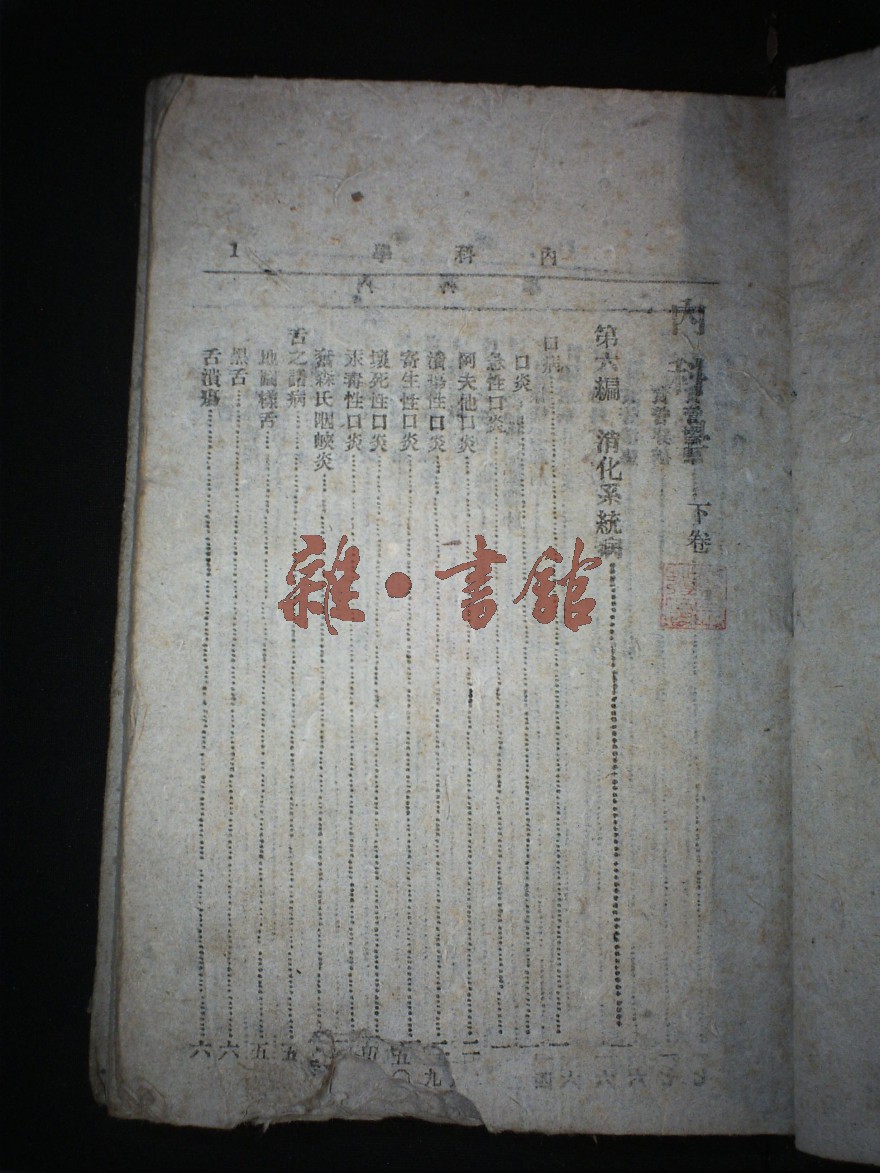 內科學 1
內科學 下卷
第六編 消化系統病 一
口病 一
口炎 一
急性口炎 一
阿夫他口炎 二
潰瘍性口炎 二
寄生性口炎
壞死性口炎
汞毒性口炎
氏咽峽炎
舌之諸病 五
地圖樣舌 五
黑舌 六
舌潰瘍 六
雜·書館